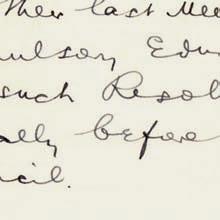 ther last Me
ulson Edu
such Resol
ally before
cil.